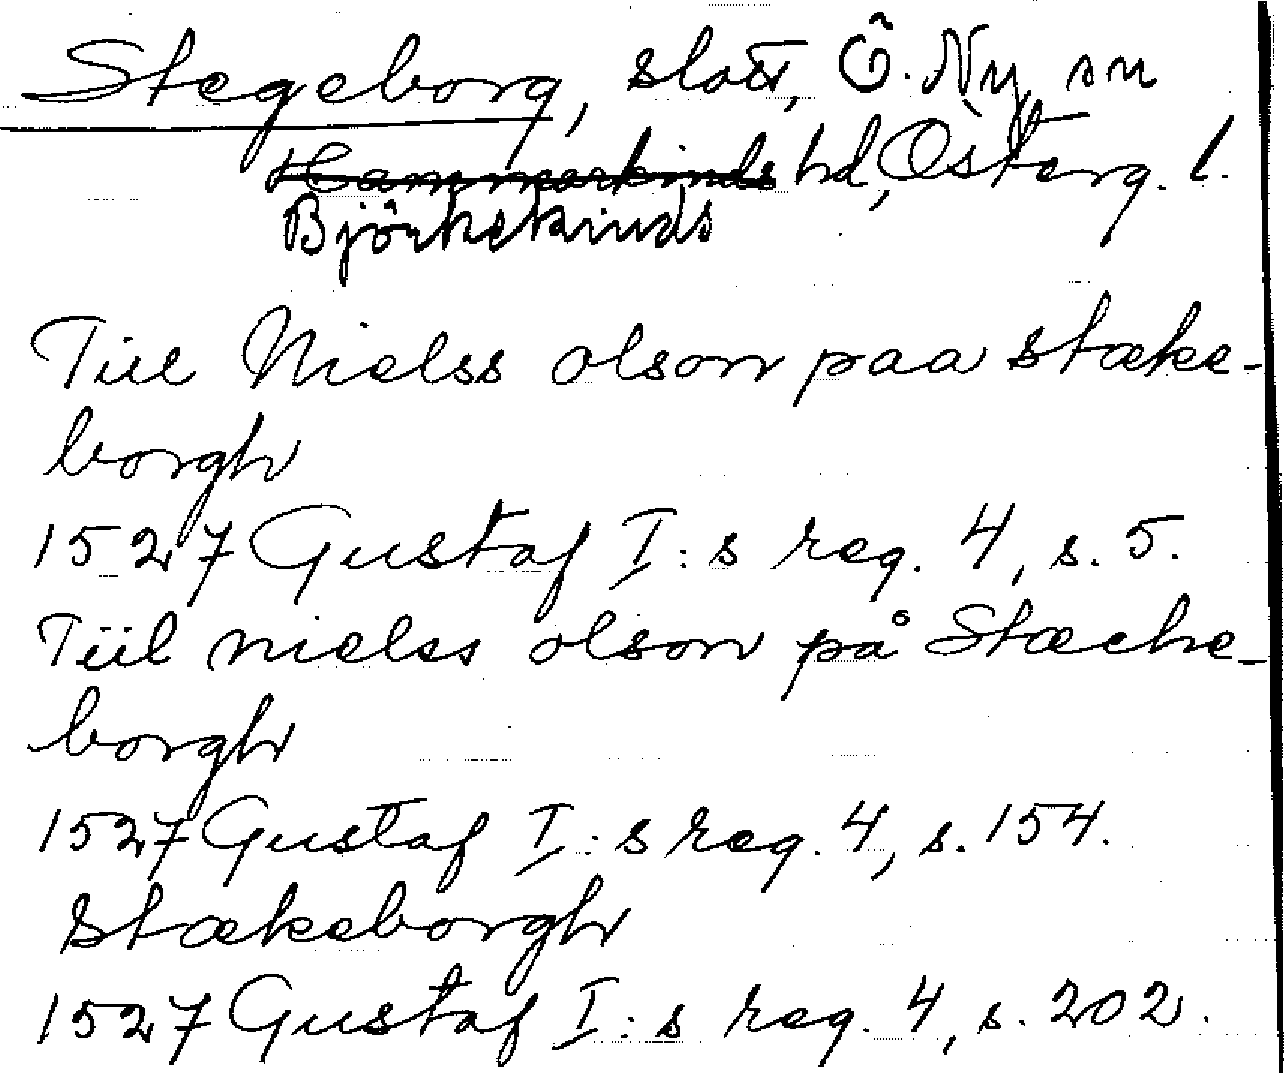 Stegeborg, slott, Ö. Ny sn
Hammarkinds hd, Österg. l.
Björkekinds
Tiil Nielss olson paa stæke-
borgh
1527 Gustaf I:s reg. 4, s. 5.
Tiil nielss olson på Stæcke-
borgh
1527 Gustaf I:s reg. 4, s. 154.
Stækeborgh
1527 Gustaf I:s reg. 4, s. 202.